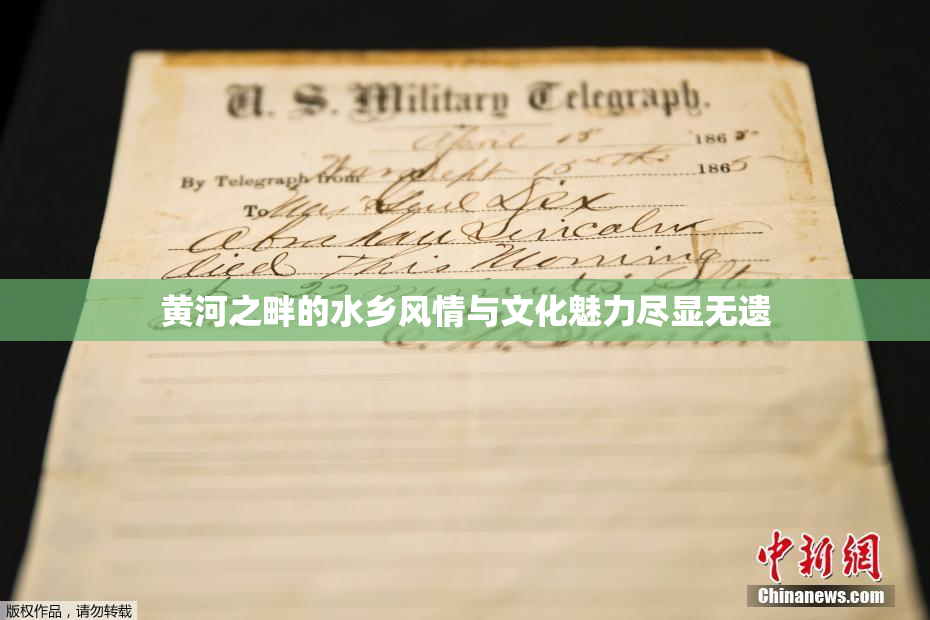 U. S. Military Telegraph.
April 15 1865
By Telegraph from War Dept 15th 1865
To Maj Genl Dix
Abraham Lincoln
died This Morning
at 22 minutes after
黄河之畔的水乡风情与文化魅力尽显无遗
E. M. Stanton
中新网
Chinanews.com
版权作品，请勿转载